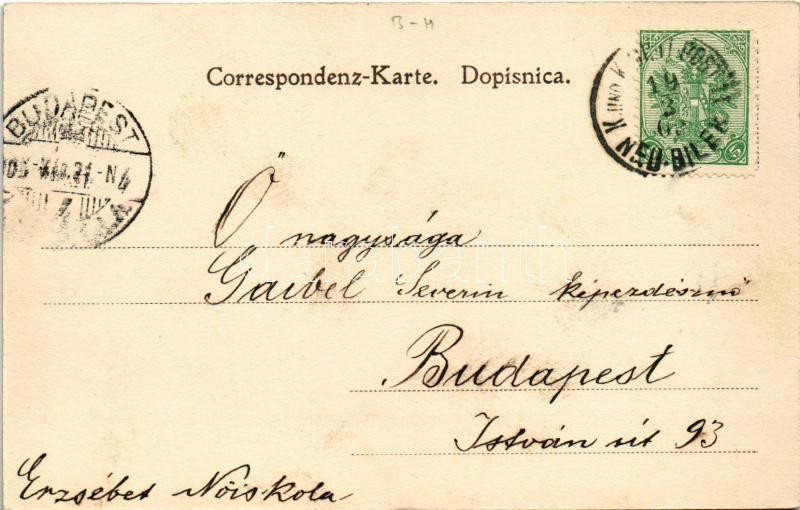 B-H
Correspondenz-Karte. Dopisnica.
BUDAPEST
NEU-BILEK
5
Ő nagysága
Gaibel Severin képezdésznő
Budapest
István út 93
Erzsébet Nőiskola
darabanth